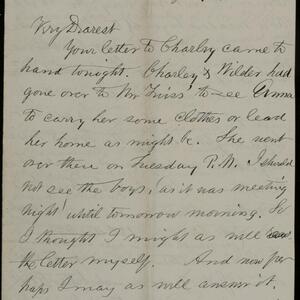 Very Dearest
Your letter to Charley came to
hand tonight. Charley & Wilder had
gone over to Mr to see Anna
to carry her some clothes or lead
her home as might be. She went
over there on Tuesday P.M. I should
not see the boys, as it was meeting
night until tomorrow morning. So
I thought I might as well
the letter myself. And now per
haps I may as well answer it.